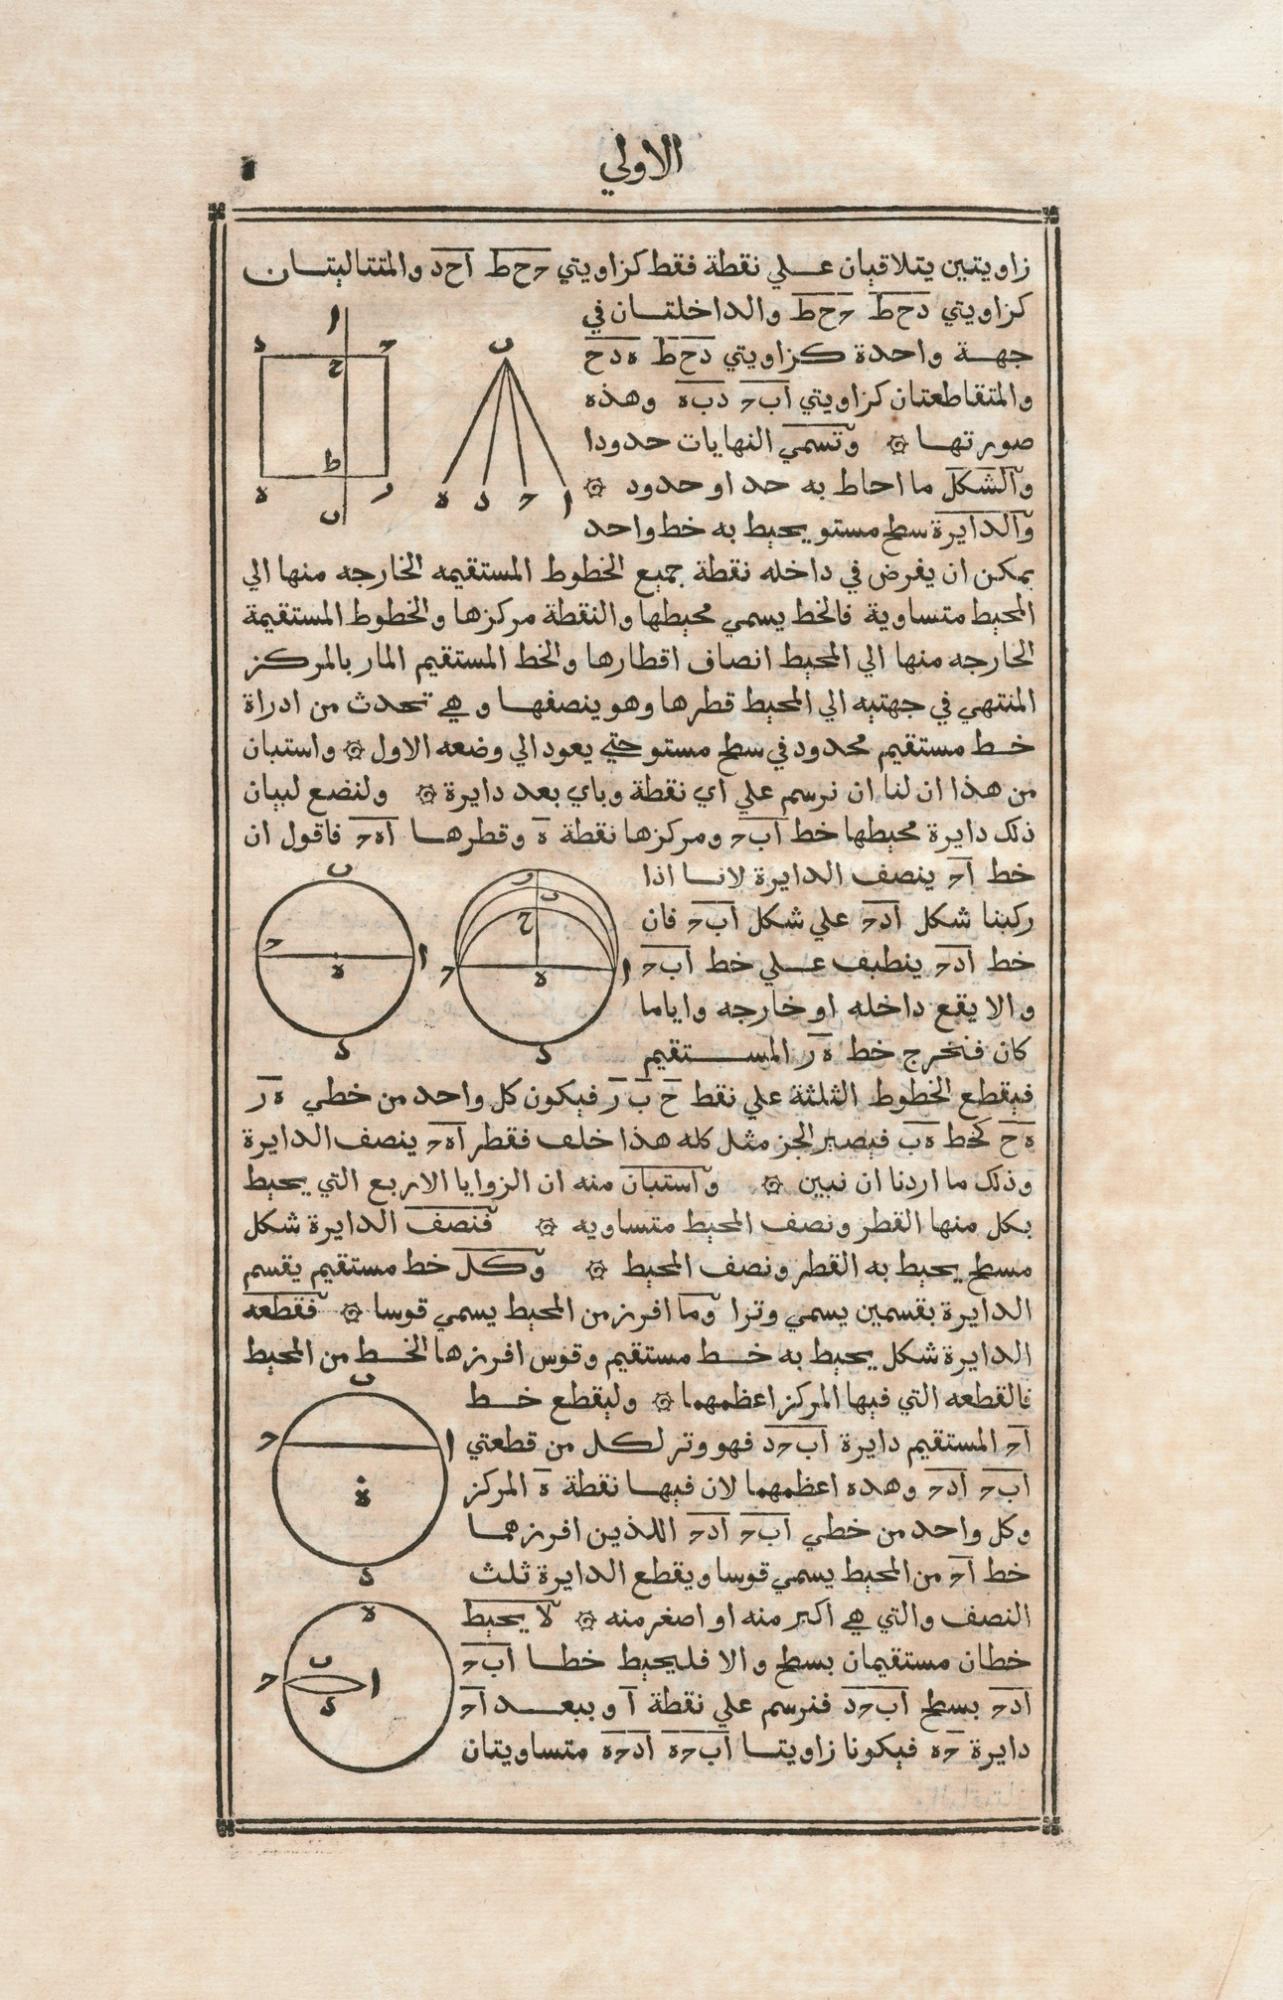 الاولي
زاويتين يتلاقيان علي نقطة فقط كزاويتي حح‍ط اح‍د والمتتاليتان
كزاويتي دح‍ط حح‍ط والداخلتان في
جهة واحدة كزاويتي دح‍ط ه‍دح
والمتقاطعتان كزاويتي ابح دبه وهذه
صورتها ۞ وتسمي النهايات حدودا
والشكل ما احاط به حد او حدود ۞
والدايرة سطح مستو يحيط به خط واحد
يمكن ان يفرض في داخله نقطة جميع الخطوط المستقيمه الخارجه منها الي
المحيط متساوية فالخط يسمي محيطها والنقطة مركزها والخطوط المستقيمة
الخارجه منها الي المحيط انصاف اقطارها والخط المستقيم المار بالمركز
المنتهي في جهتيه الي المحيط قطرها وهو ينصفها وهي تحدث من ادراة
خط مستقيم محدود في سطح مستو حتي يعود الي وضعه الاول ۞ واستبان
من هذا ان لنا ان نرسم علي اي نقطة وباي بعد دايرة ۞ ولنضع لبيان
ذلك دايرة محيطها خط ابح ومركزها نقطة ه وقطرها اهح فاقول ان
خط اح ينصف الدايرة لانا اذا
ركبنا شكل ادح علي شكل ابح فان
خط ادح ينطبف علي خط ابح
والا يقع داخله او خارجه واياما
كان فنخرج خط ه ر المستقيم
فيقطع الخطوط الثلثة علي نقط ح ب ر فيكون كل واحد من خطي ه ر
ه ح كخط ه ب فيصير الجز مثل كله هذا خلف فقطر اهح ينصف الدايرة
وذلك ما اردنا ان نبين ۞ واستبان منه ان الزوايا الاربع التي يحيط
بكل منها القطر ونصف المحيط متساويه ۞ فنصف الدايرة شكل
مسطح يحيط به القطر ونصف المحيط ۞ وكل خط مستقيم يقسم
الدايرة بقسمين يسمي وترا وما افرز من المحيط يسمي قوسا ۞ فقطعه
الدايرة شكل يحيط به خط مستقيم وقوس افرزها الخط من المحيط
فالقطعه التي فيها المركز اعظمهما ۞ وليقطع خط
اح المستقيم دايرة ابحد فهو وتر لكل من قطعتي
ابح ادح وهده اعظمهما لان فيها نقطة ه المركز
وكل واحد من خطي ابح ادح اللذين افرزهما
خط اح من المحيط يسمي قوسا ويقطع الدايرة ثلث
النصف والتي هي اكبر منه او اصغر منه ۞ لا يحيط
خطان مستقيمان بسطح والا فليحيط خطا ابح
ادح بسطح ابحد فنرسم علي نقطة ا وببعد اح
دايرة حه فيكونا زاويتا ابحه ادحه متساويتان